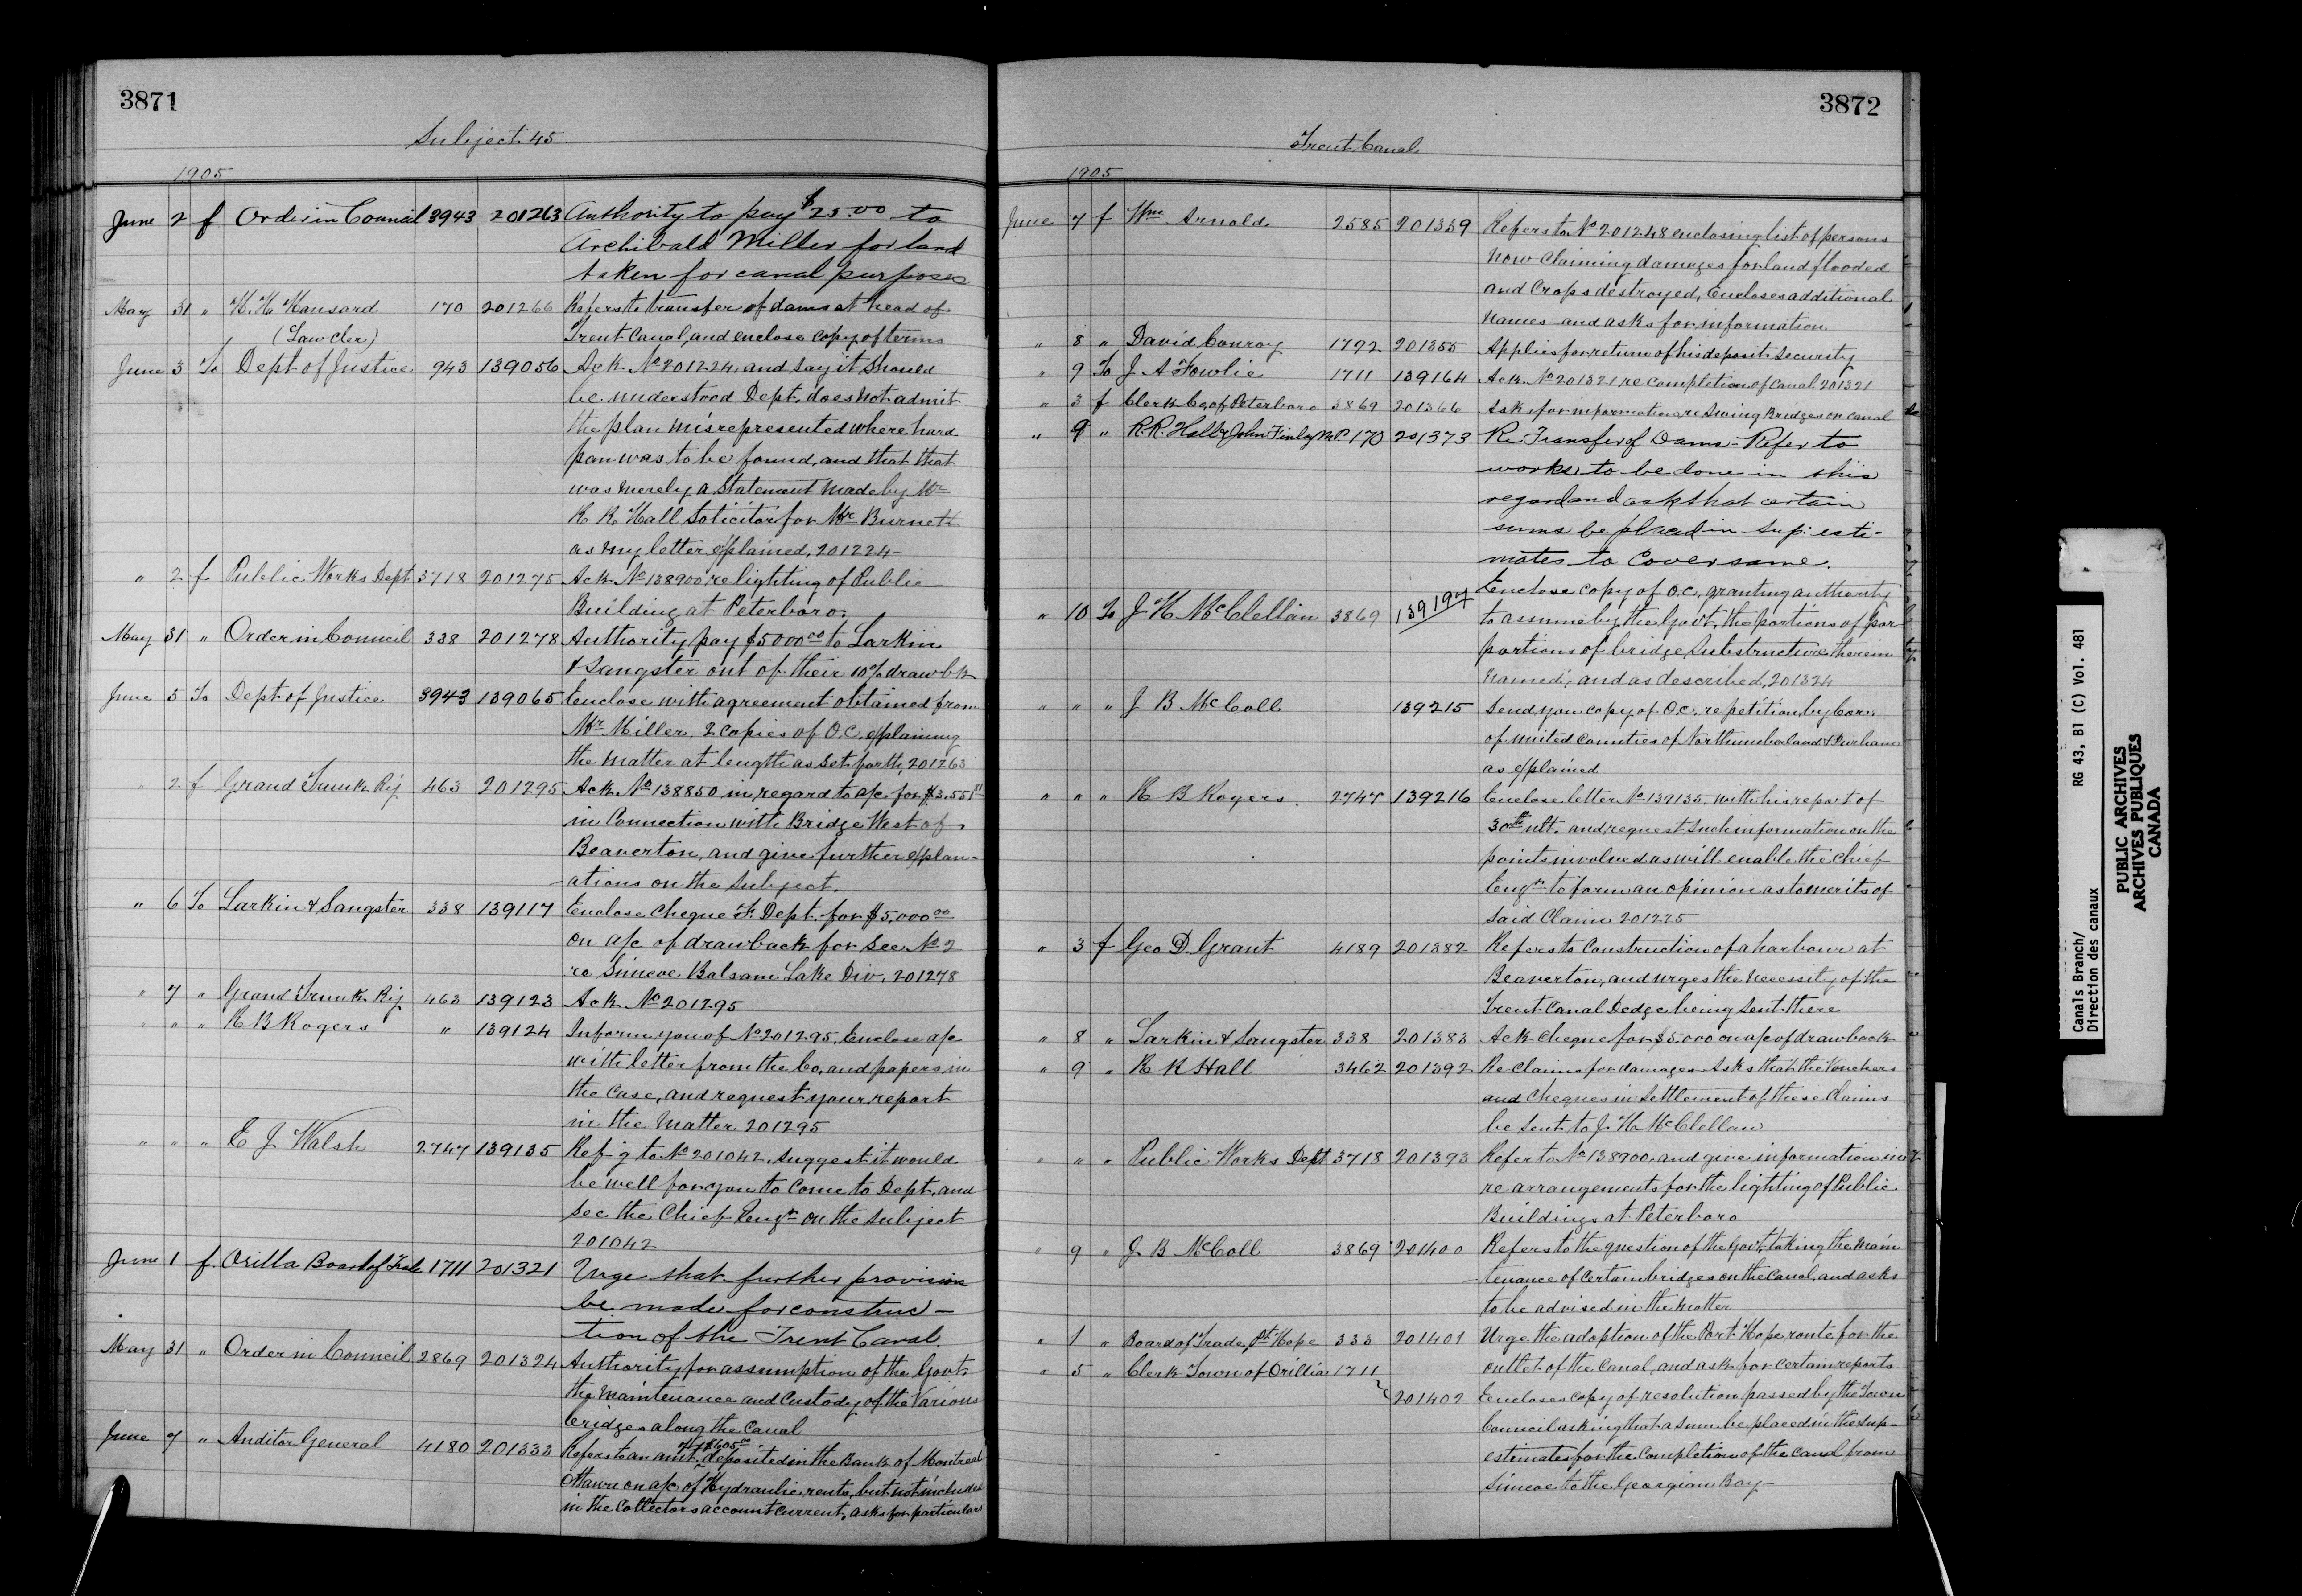 3871
Subject 45
1905
June 2 f Order in Council 3943 201263 Authority to pay $25.00 to
Archibald Miller for land
taken for canal purposes
May 31 " H. H. Hansard 170 201266 Refers to transfer of dams at head of
(Law Cler) Trent Canal, and enclose copy of terms
June 3 To Dept of Justice 943 139056 Ack. No 201224, and say it should
be understood Dept. does not admit
the plan misrepresented where hard
pan was to be found, and that that
was merely a statement made by Mr
R R Hall Solicitor for Mr Burnett
as my letter explained, 201224 -
" 2 f Public Works Dept 3718 201275 Ack No 138900 re lighting of Public
Building at Peterboro.
May 31 " Order in Council 338 201278 Authority pay $5000 00 to Larkin
& Sangster out of their 10% drawbk
June 5 To Dept of Justice 3943 139065 Enclose with agreement obtained from
Mr Miller, 2 copies of O.C. explaining
the matter at length as set forth, 201263
" 2 f Grand Trunk Ry 463 201295 Ack No 138850 in regard to a/c for $3.55
in connection with Bridge West of
Beaverton, and give further explan-
-ations on the subject.
" 6 To Larkin & Sangster 338 139117 Enclose cheque F. Dept. for $5,000 00
on a/c of drawback for Sec. No 2
re Simcoe Balsam Lake Div. 201278
" 7 " Grand Trunk Ry 463 139123 Ack No 201295
" " " R B Rogers " 139124 Inform you of No 201295, Enclose a/c
with letter from the Co, and papers in
the case, and request your report
in the matter 201295
" " " E J Walsh 2747 139135 Ref-g to No 201042, suggest it would
be well for you to come to Dept, and
see the Chief Engr on the subject
201042
June 1 f. Orilla Board of Trade 1711 201321 Urge that further provision
be made for construc-
tion of the Trent Canal.
May 31 " Order in Council 2869 201324 Authority for assumption of the Govt
the maintenance and custody of the various
bridges along the Canal
June 7 " Auditor General 4180 201333 Refers to an amt. of $605 00 deposited in the Bank of Montreal
Ottawa on a/c of Hydraulic rents, but not included
in the Collectors account current, asks for particulars
3872
Trent Canal
1905
June 7 f Wm Arnold 2585 201339 Refers to No 201248 enclosing list of persons
now claiming damages for land flooded
and crops destroyed, Encloses additional
names and asks for information
" 8 " David Conroy 1792 201355 Applies for return of his deposit security
" 9 To J. A Fowlie 1711 139164 Ack. No 201321 re completion of Canal 201321
" 3 f Clerk Co. of Peterboro 3869 201366 Asks for information re Swing Bridges on canal
" 9 " R. R. Hall & John Finlay M.P. 170 201373 Re Transfer of Dams - Refer to
works to be done in this
regard and ask that certain
sums be placed in Sup: esti-
mates to cover same.
Enclose copy of O.C., granting authority
" 10 To J H McClellan 3869 139197 to assume by the Govt, the portions of por
portions of bridge, substructure therein
named, and as described, 201324
" " " J B McColl 139215 Send you copy of O.C. re petition by Cor.
of united counties of Northumberland & Durham
as explained
" " " R B Rogers. 2747 139216 Enclose letter No 139135, with his report of
30th ult. and request such information on the
points involved as will enable the Chief
Engr to form an opinion as to merits of
said Claim 201225
" 3 f Geo D. Grant 4189 201382 Refers to Construction of a harbour at
Beaverton, and urges the necessity of the
Trent Canal Dedge being sent there
" 8 " Larkin & Sangster 338 201383 Ack cheque for $5.000 on a/c of drawback
" 9 " R R Hall 3462 201392 Re Claims for damages - Asks that the Vouchers
and cheques in settlement of these claims
be sent to J. H. McClellan
" " " Public Works Dept 3718 201393 Refer to No 138900, and give information in
re arrangements for the lighting of Public
Buildings at Peterboro
" 9 " J. B McColl 3869 201400 Refers to the question of the Govt, taking the main
-tenance of certain bridges on the Canal, and asks
to be advised in the matter
" 1 " Board of Trade, Pt. Hope 333 201401 Urge the adoption of the Port Hope route for the
outlet of the Canal, and ask for certain reports
" 5 " Clerk Town of Orillia 1711
201402 Encloses copy of resolution passed by the Town
Council asking that a sum be placed in the Sup-
estimates for the Completion of the Canal from
Simcoe to the Georgian Bay
Canals Branch/ RG 43, B1 (C) Vol. 481
Direction des canaux
PUBLIC ARCHIVES
ARCHIVES PUBLIQUES
CANADA